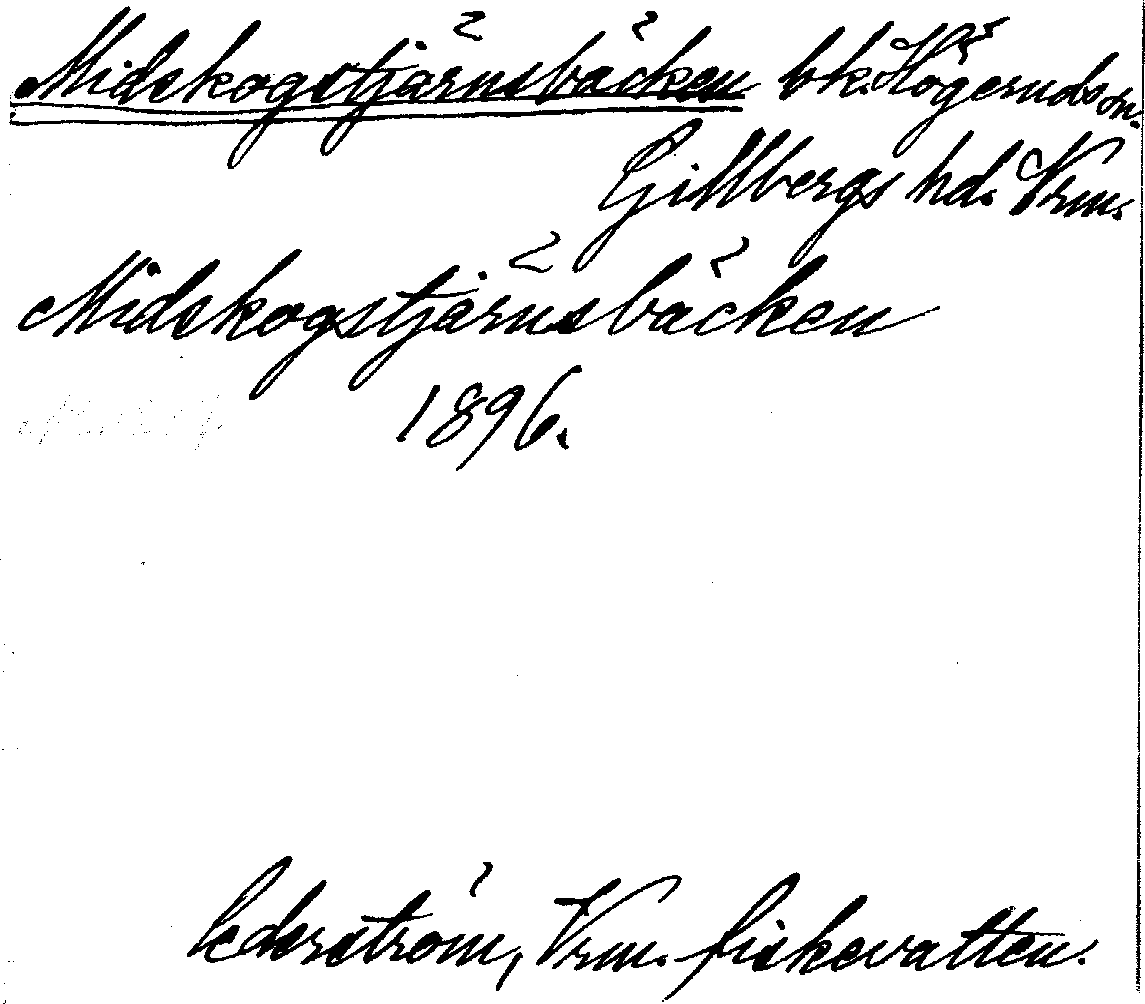 Midskogstjärnsbäcken bk. Högeruds sn.
Gillbergs hd. Vrm.
Midskogstjärnsbäcken
1896.
Cederström, Vrm. fiskevatten.